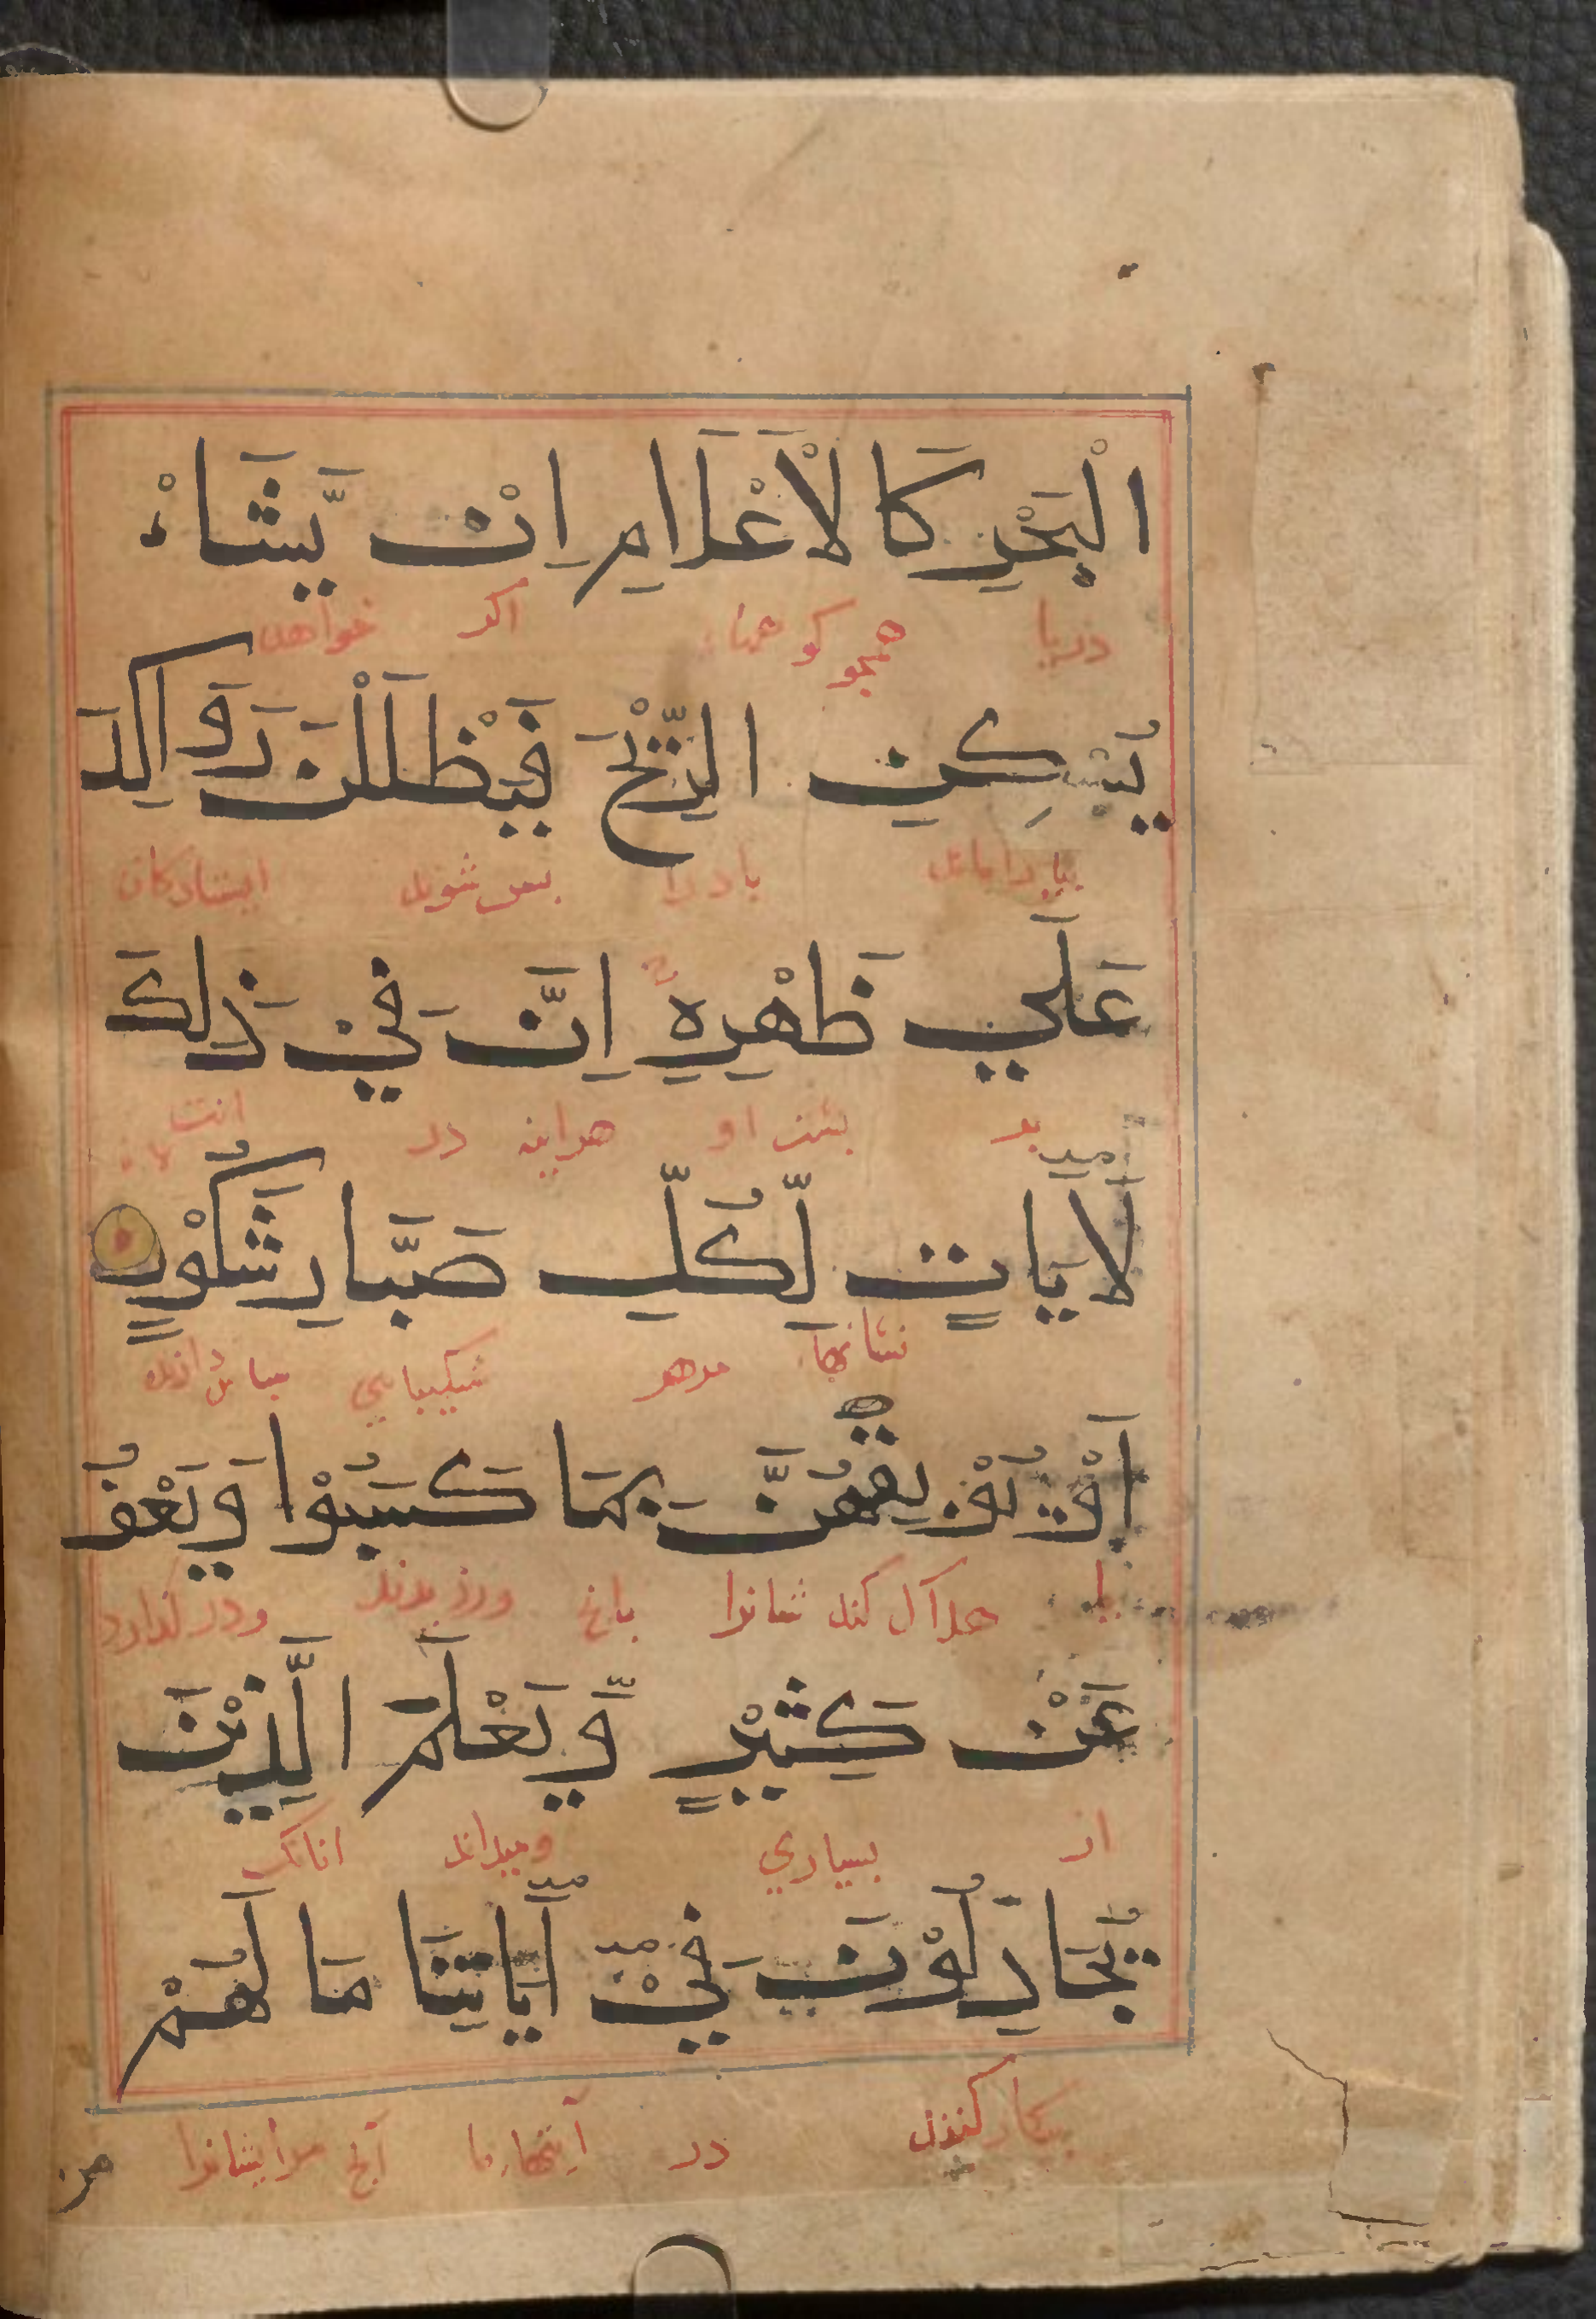 الْبَحْرِ كَالْاَعْلَامِ اِنْ يَّشَاءْ
دریا همچو کوهها اکر خواهد
يُسْكِنِ الرِّيْحَ فَيَظْلَلْنَ رَوَاكِدَ
بیاراماند باد را پس شوند ایستادکان
عَلَي ظَهْرِهٖ اِنَّ فِيْ ذٰلِكَ
بر پشت او هراینه در
لَاٰيَاتٍ لِّكُلِّ صَبَّارٍ شَكُوْرٍ
نشانها مرهر شکیبایي
اَوْ يُوْبِقْهُنَّ بِمَا كَسَبُوْا وَيَعْفُ
یا کند ورزیدند ودر کذارد
عَنْ كَثِيْرٍ وَّيَعْلَمَ الَّذِيْنَ
از بسیاري ومیداند انانک
يُجَادِلُوْنَ فِيْ اٰيَاتِنَا مَا لَهُمْ
پیکار کنند در آیتهاء ما آنچ مرایشانرا
من